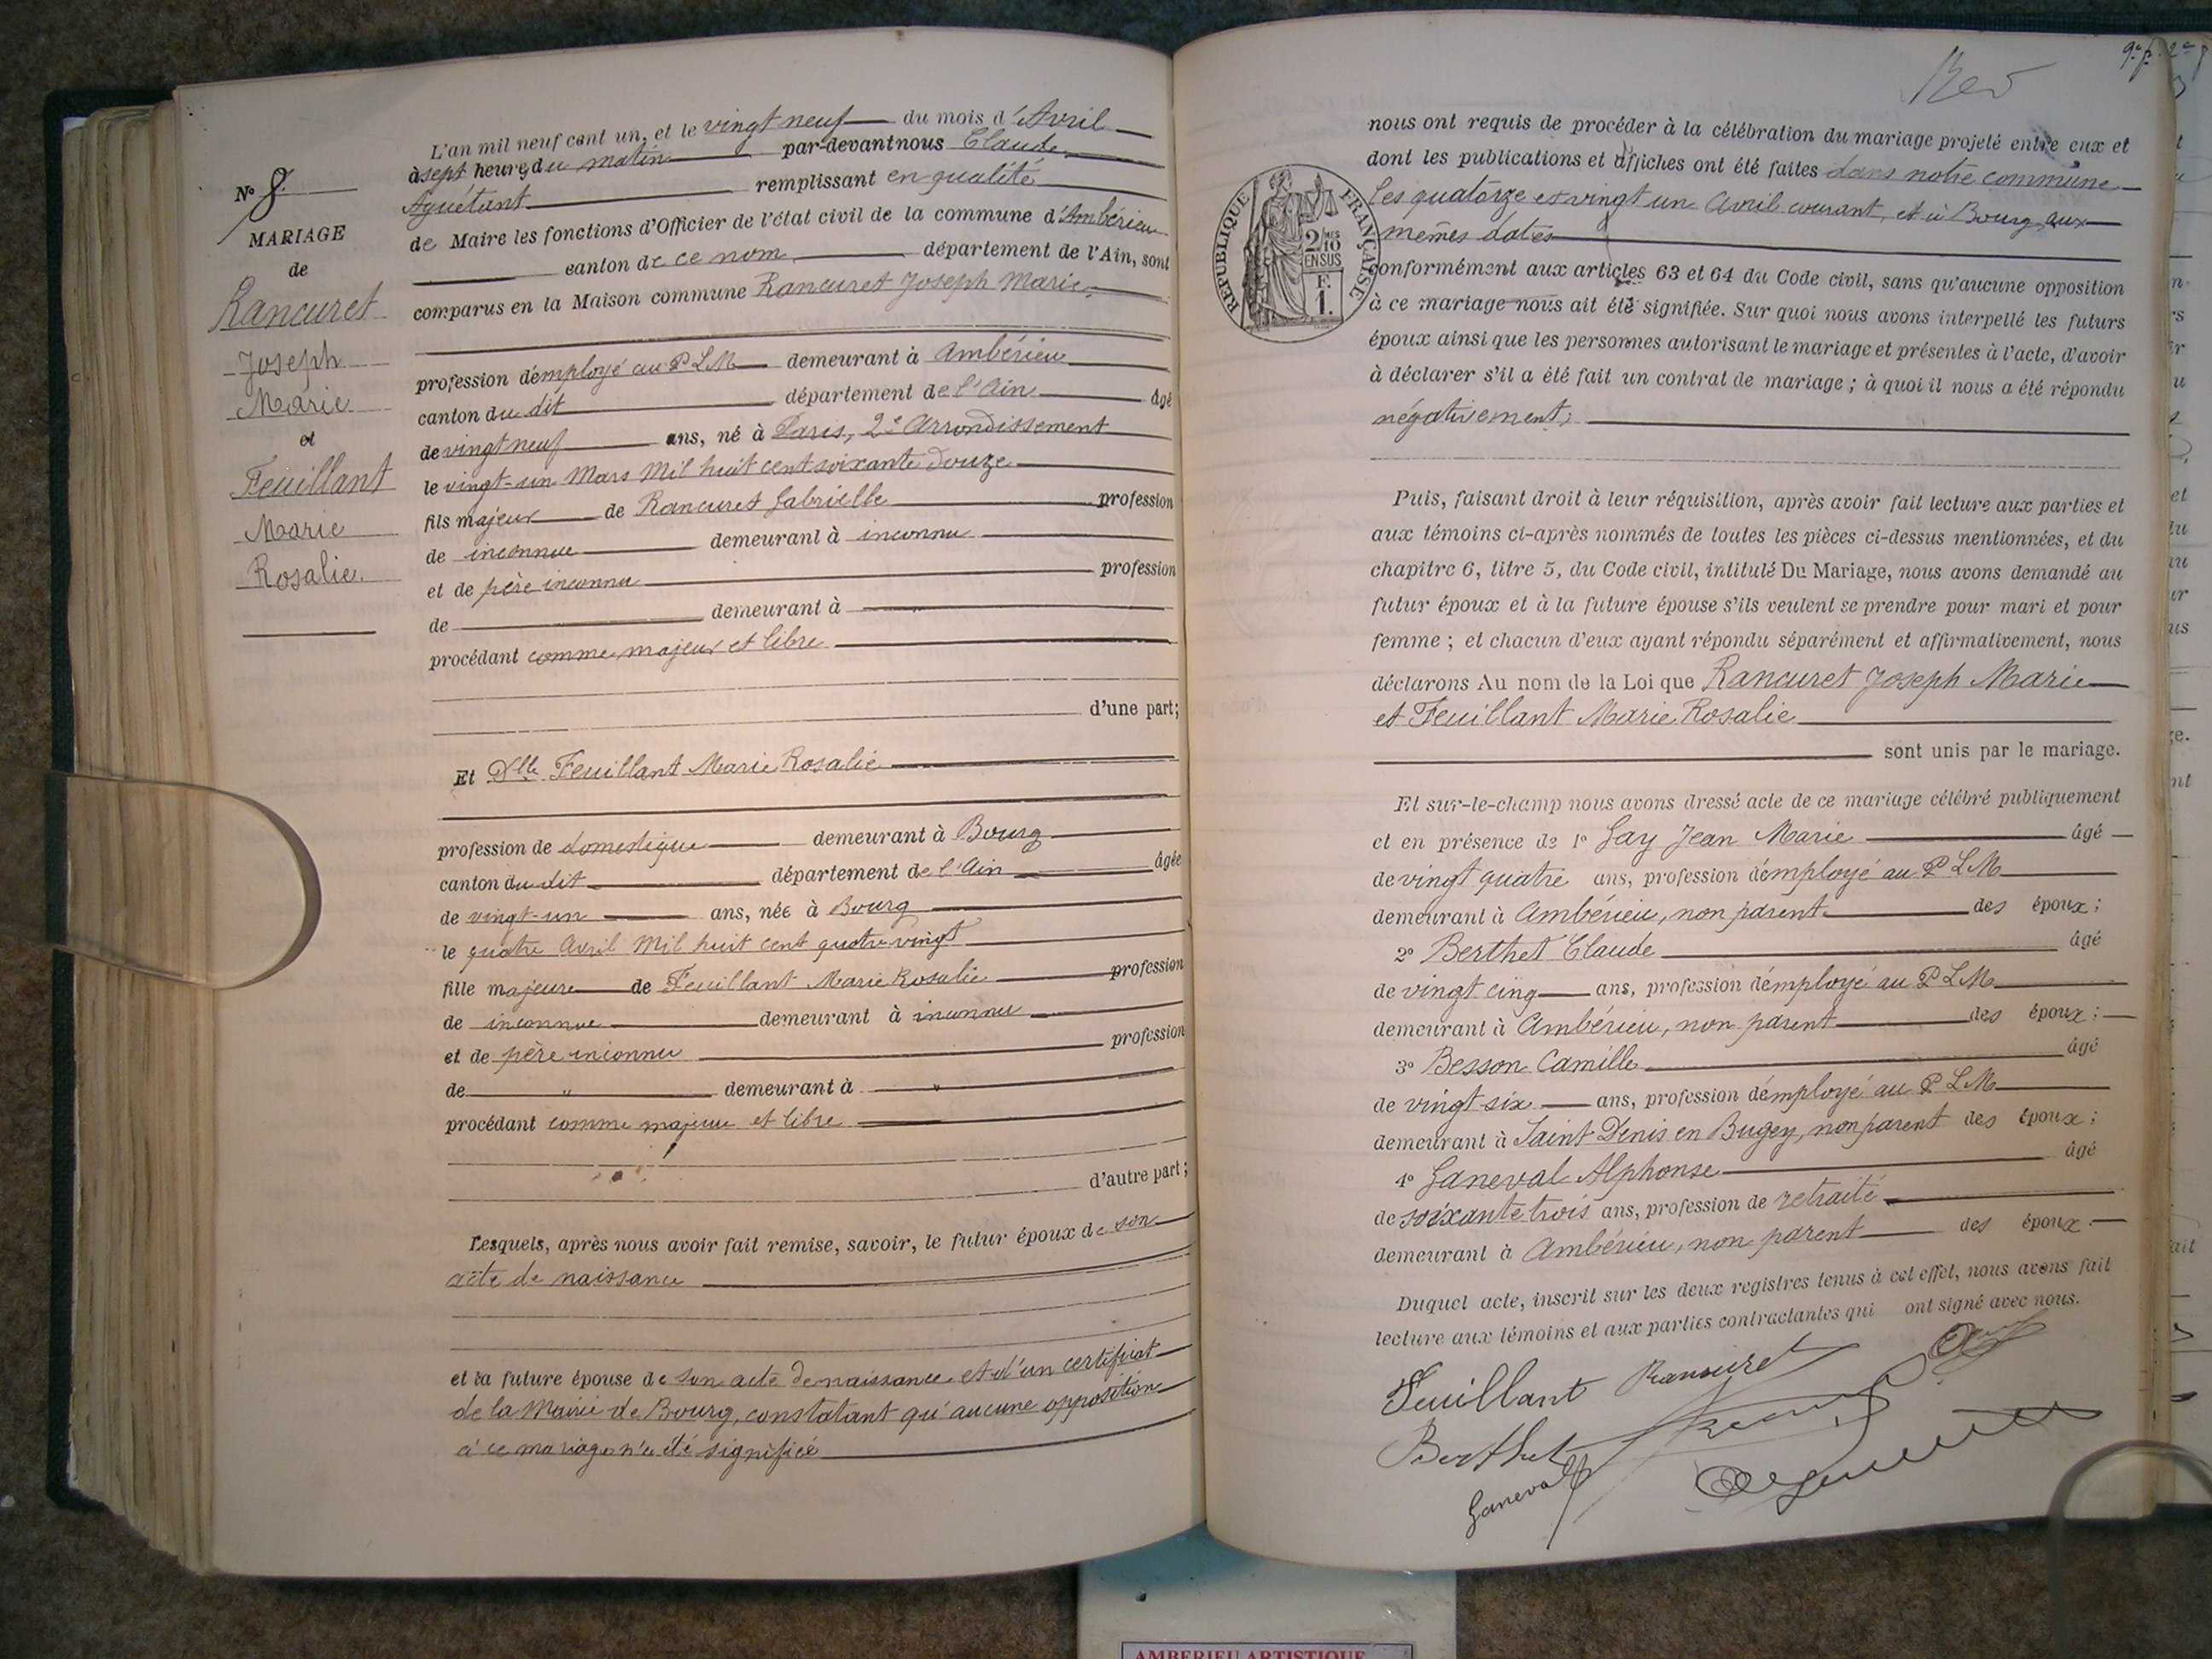 L'an mil neuf cent un, et le vingt neuf du mois d'Avril
à sept heures du matin par-devant nous Claude
Aguétant remplissant en qualité
de Maire les fonctions d'Officier de l'état civil de la commune d'Ambérieu
canton de ce nom département de l'Ain, sont
comparus en la Maison commune Rancuret Joseph Marie
profession d'employé au P L M demeurant à Ambérieu
canton du dit département de l'Ain âgé
de vingt neuf ans, né à Paris, 2e Arrondissement
le vingt-un Mars Mil huit cent soixante douze
fils majeur de Rancuret Gabrielle profession
de inconnue demeurant à inconnu
et de père inconnu profession
de demeurant à "
procédant comme majeur et libre
d'une part;
Et Dlle Feuillant Marie Rosalie
profession de domestique demeurant à Bourg
canton du dit département de l'Ain âgée
de vingt-un ans, née à Bourg
le quatre Avril Mil huit cent quatre vingt
fille majeure de Feuillant Marie Rosalie profession
de inconnue demeurant à inconnu
et de père inconnu profession
de " demeurant à "
procédant comme majeure et libre
d'autre part;
Lesquels, après nous avoir fait remise, savoir, le futur époux de son
acte de naissance
et la future épouse de son acte de naissance et d'un certificat
de la Mairie de Bourg, constatant qu'aucune opposition
à ce mariage n'a été signifiée
No 8.
MARIAGE
de
Rancuret
Joseph
Marie
et
Feuillant
Marie
Rosalie.
nous ont requis de procéder à la célébration du mariage projeté entre eux et
dont les publications et affiches ont été faites dans notre commune
les quatorze et vingt un Avril courant, et à Bourg aux
mêmes dates
conformément aux articles 63 et 64 du Code civil, sans qu'aucune opposition
à ce mariage nous ait été signifiée. Sur quoi nous avons interpellé les futurs
époux ainsi que les personnes autorisant le mariage et présentes à l'acte, d'avoir
à déclarer s'il a été fait un contrat de mariage ; à quoi il nous a été répondu
négativement;
Puis, faisant droit à leur réquisition, après avoir fait lecture aux parties et
aux témoins ci-après nommés de toutes les pièces ci-dessus mentionnées, et du
chapitre 6, titre 5, du Code civil, intitulé Du Mariage, nous avons demandé au
futur époux et à la future épouse s'ils veulent se prendre pour mari et pour
femme ; et chacun d'eux ayant répondu séparément et affirmativement, nous
déclarons Au nom de la Loi que Rancuret Joseph Marie
et Feuillant Marie Rosalie
sont unis par le mariage.
Et sur-le-champ nous avons dressé acte de ce mariage célébré publiquement
et en présence de 1o Gay Jean Marie âgé
de vingt quatre ans, profession d'employé au P L M
demeurant à Ambérieu, non parent des époux;
2o Berthet Claude âgé
de vingt cinq ans, profession d'employé au P L M
demeurant à Ambérieu, non parent des époux;
3o Besson Camille âgé
de vingt six ans, profession d'employé au P L M
demeurant à Saint Denis en Bugey, non parent des époux;
4o Ganeval Alphonse âgé
de soixante trois ans, profession de retraité
demeurant à Ambérieu, non parent des époux.
Duquel acte, inscrit sur les deux registres tenus à cet effet, nous avons fait
lecture aux témoins et aux parties contractantes qui ont signé avec nous.
Feuillant Rancuret
Berthet
Ganeval
REPUBLIQUE FRANÇAISE
2/10
EN SUS
F.
1.
AMBERIEU ARTISTIQUE